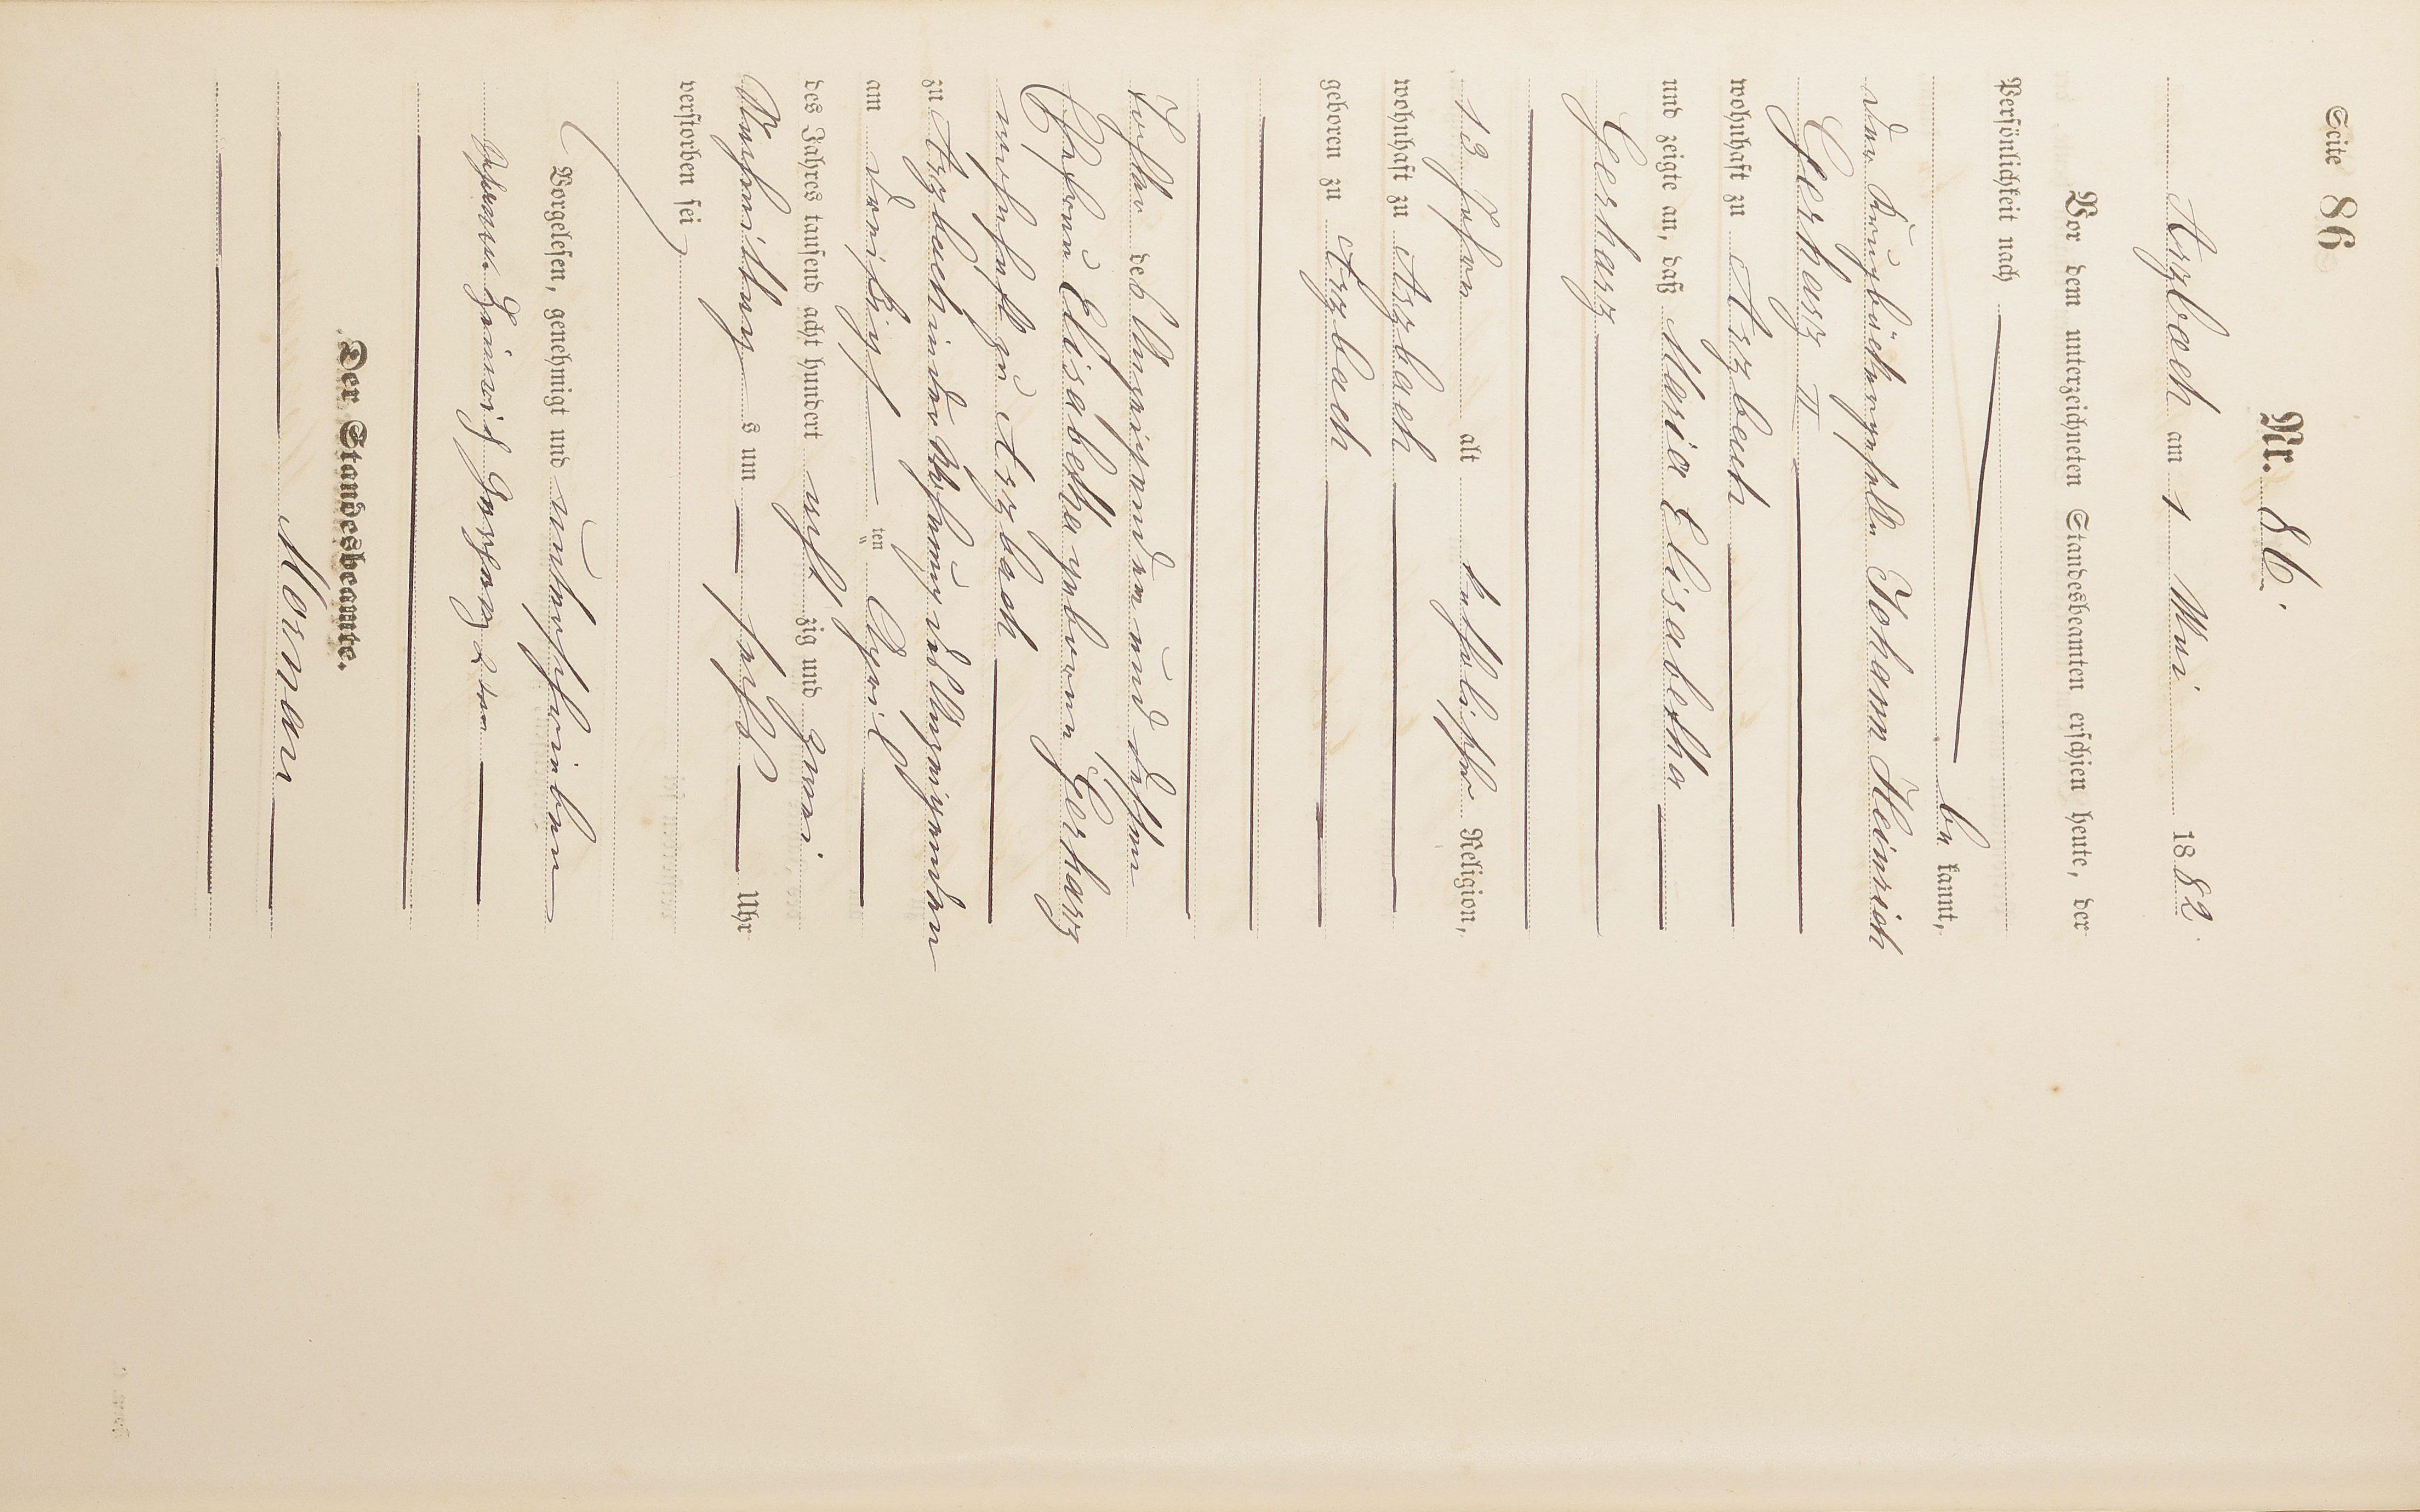 Seite 86
Nr. 86.
Arzbach am 1 Mai 1882.
Vor dem unterzeichneten Standesbeamten erschien heute, der
Persönlichkeit nach
be kannt,
der Johann Heinrich
Gerharz II
wohnhaft zu Arzbach
und zeigte an, daß Maria Elisabetha
Gerharz
13 Jahre alt katholischer Religion,
wohnhaft zu Arzbach
geboren zu Arzbach
Tochter des Anzeigenden und dessen
Ehefrau Elisabetha geborene Gerharz
wohnhaft zu Arzbach
zu Arzbach in der Wohnung des Anzeigenden
am dreißig ten April
des Jahres tausend acht hundert acht zig und zwei
Nachmittag s um sechs Uhr
verstorben sei
Vorgelesen, genehmigt und unterschrieben
Johann Heinrich Gerharz 2ter
Der Standesbeamte.